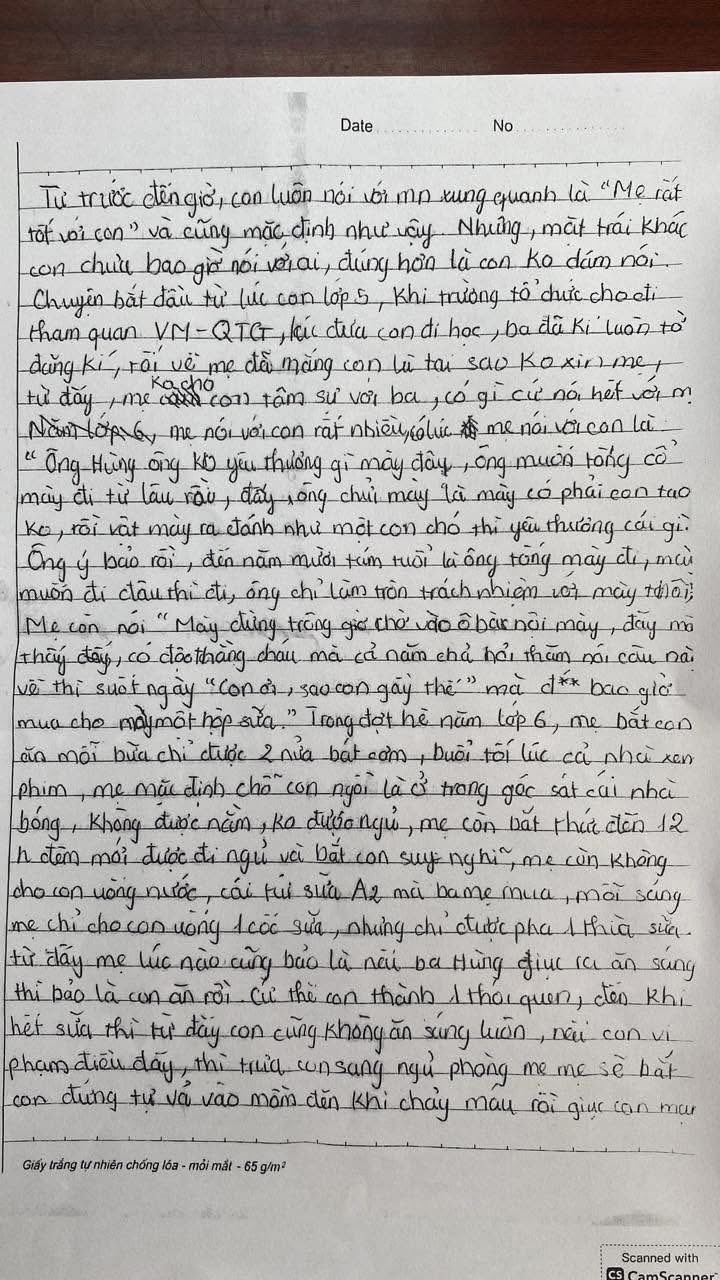 Date No
Từ trước đến giờ, con luôn nói với mn xung quanh là "Mẹ rất
tốt với con" và cũng mặc định như vậy. Nhưng, mặt trái khác
con chưa bao giờ nói với ai, đúng hơn là con ko dám nói.
Chuyện bắt đầu từ lúc con lớp 5, khi trường tổ chức cho đi
tham quan VM-QTG, lúc đưa con đi học, ba đã kí luôn tờ
đăng kí, rồi về mẹ đã mắng con là tại sao Ko xin mẹ,
từ đấy, mẹ Ko cho con tâm sự với ba, có gì cứ nói hết với m
Năm lớp 6, mẹ nói với con rất nhiều, có lúc mẹ nói với con là:
"Ông Hùng ông ko yêu thương gì mày đây, ông muốn tống cổ
mày đi từ lâu rồi, đấy, ông chửi mày là mày có phải con tao
ko, rồi vật mày ra đánh như một con chó thì yêu thương cái gì?
Ông ý bảo rồi, đến năm mười tám tuổi là ông tống mày đi, mày
muốn đi đâu thì đi, ông chỉ làm tròn trách nhiệm với mày thôi".
Mẹ con nói "Mày đừng trông giờ chờ vào ô bà nội mày, đấy mà
thấy đấy, có đứa thằng cháu mà cả năm chả hỏi thăm nói câu nào
về thì suốt ngày "con ơi, sao con gầy thế" mà đ** bao giờ
mua cho mày một hộp sữa." Trong đợt hè năm lớp 6, mẹ bắt con
ăn mỗi bữa chỉ được 2 nửa bát cơm, buổi tối lúc cả nhà xem
phim, mẹ mặc định chỗ con ngồi là ở trong góc sát cái nhà
bóng, Không được nằm, ko được ngủ, mẹ còn bắt thức đến 12
h đêm mới được đi ngủ và bắt con suy nghĩ, mẹ còn không
cho con uống nước, cái túi sữa A2 mà ba mẹ mua, mỗi sáng
mẹ chỉ cho con uống 1 cốc sữa, nhưng chỉ được pha 1 thìa sữa.
từ đấy mẹ lúc nào cũng bảo là nếu ba Hùng giục ra ăn sáng
thì bảo là con ăn rồi. Cứ thế con thành 1 thói quen, đến khi
hết sữa thì từ đấy con cũng không ăn sáng luôn, nếu con vi
phạm điều đấy, thì trưa con sang ngủ phòng mẹ mẹ sẽ bắt
con đứng tự vả vào mồm đến khi chảy máu rồi giục con mau
Giấy trắng tự nhiên chống lóa - mỏi mắt - 65 g/m²
Scanned with
CS CamScanner